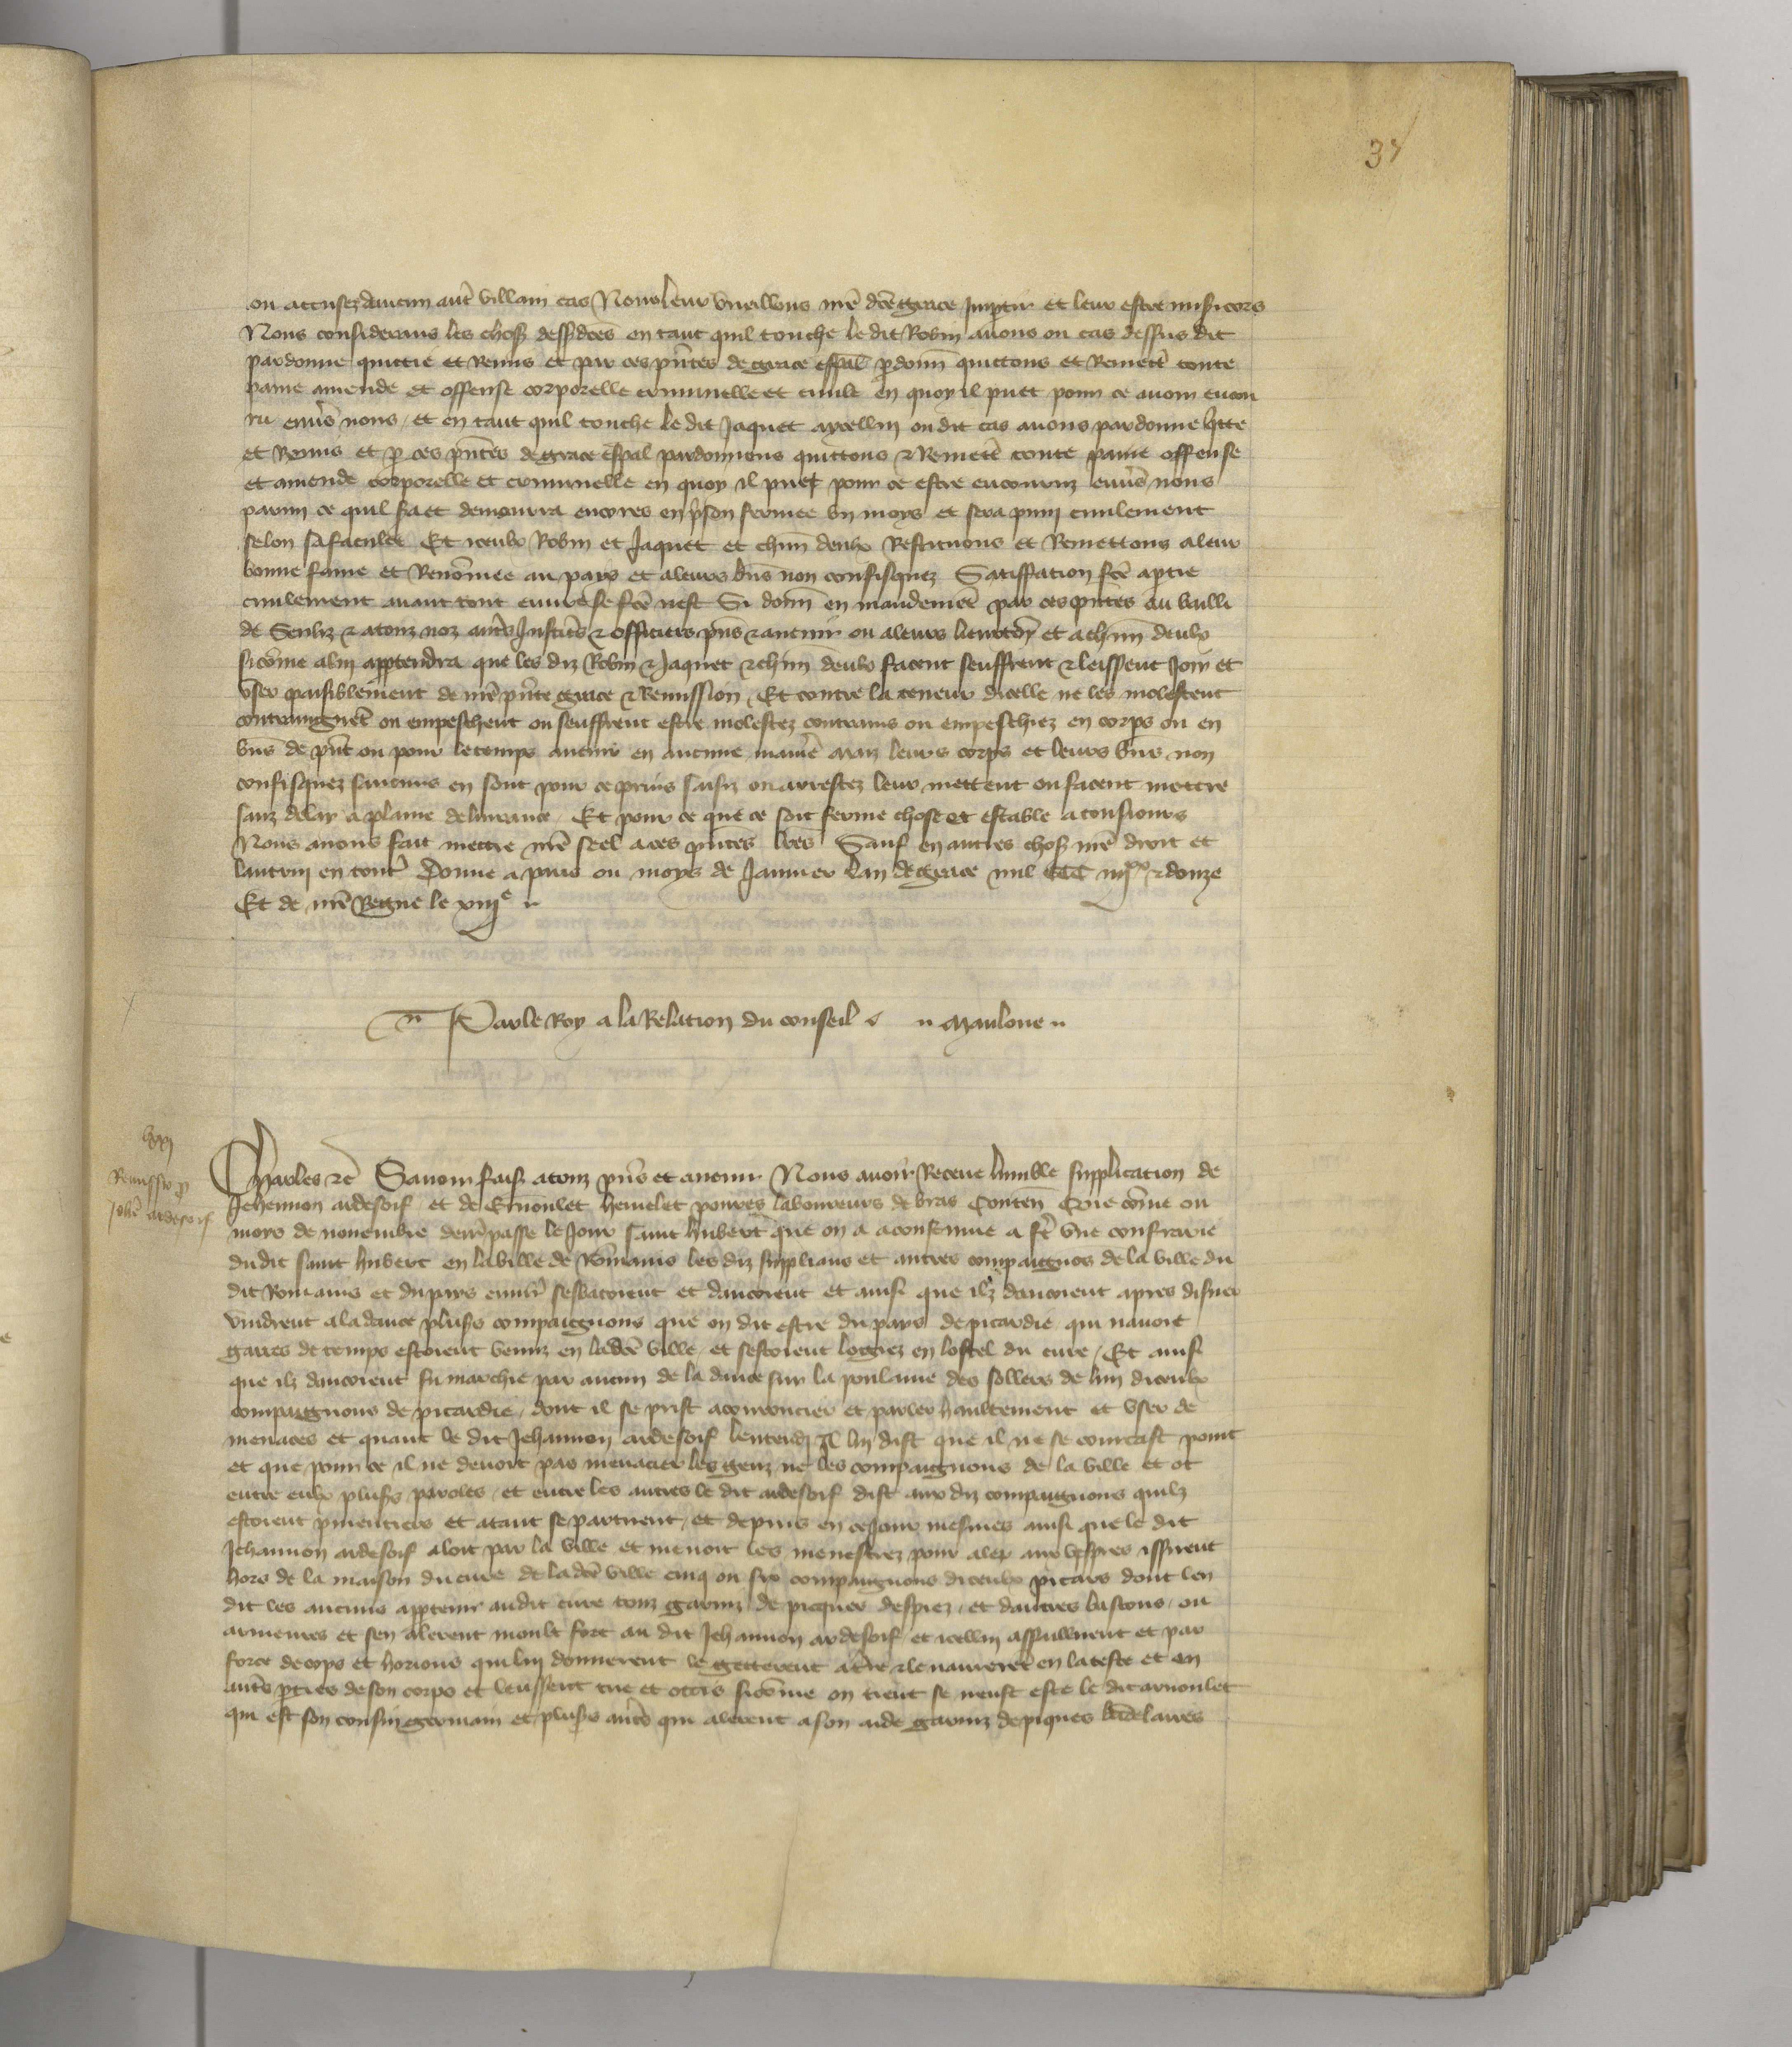 37
ou accusez daucun autre villain cas Nous leur vueillons nrē dcē grace Impartir et leur estre misicors
Nous considerans les choses dessusdcēs en tant quil touche le dit Robin auons ou cas dessus dit
pardonne quittie et Remis et par ces pñtes de grace esp̄al p̄donñ quittons et Remettō toute
paine amende et offense corporelle criminelle et ciuile en quoy il puet pour ce auoir encou
ru enuers nous / et en tant quil touche le dit Jaquet ou dit cas auons pardonne qitte
et Remis et p̄ ces pñtes de grace esp̄al pardonnons quittons & Remettō toute paine offense
et amende corporelle et criminelle en quoy il puet pour ce estre encouruz enuers nous
parmi ce quil demourra encores en p̄son fermee vn moys et sera puni ciuilement
selon sa faculte Et iceulx Robin et Jaquet et chūn deulx Restituons et Remettons a leur
bonne fame et Renōmee au pays et a leurs biēs non confisquez Satiffation fcē a ptie
ciuilement auant tout euure se fcē nest Si donñ en mandemēt par ces pñtes au bailli
de Senliz & a touz noz autres Justiciēs & officiers pñs & auenir ou a leurs lieuxten̄ et a chūn deulx
sicōme a lui appartendra que les diz Robin & Jaquet & chūn deulx facent seuffrent & leissent Joir et
vser paisiblement de nrē pñte grace & Remission / Et contre la teneur dicelle ne les molestent
contraingnēt ou empeschent ou seuffrent estre molestez contrains ou empeschiez en corps ou en
biēs de pñt ou pour le temps auenir en aucune maniē maiz leurs corps et leurs biēs non
confisquez saucuns en sont pour ce prins saisiz ou arrestez leur mettent ou facent mettre
sanz delay a plaine deliurance / Et pour ce que ce soit ferme chose et estable a tousiours
Nous auons fait mettre nrē seel a ces pñtes lrēs Sauf en autres choses nrē droit et
lautruy en toutes Donne a paris ou moys de Januier lan de grace mil CCC iiij xx & douze
Et de nrē Regne le xiij e
Par le Roy a la Relation du conseil Maulone
lxxj
Remissio p̄
Johē ardesoif
Charles &c̄ Sauoir fais a touz pñs et auenir Nous auoir Receue lumble supplication de
Jehannon ardesoif et de Ernoulet hemelet poures laboureurs de bras Contenñ Que cōme ou
moys de nouembre derrēpasse le Jour saint hubert que on a acoustume a frē vne confrarie
du dit saint hubert en la ville de Rōmains les diz supplians et autres compaignons de la ville du
dit Romains et du pais enuirō sesbatoient et dancoient et ainsi que ilz dancoient apres disner
vindrent a la dance plusrs compaignons que on dit estre du pays de picardie qui nauoit
gaires de temps estoient venuz en ladcē ville / et sestoient logiez en lostel du cure / Et ainsi
que ilz dancoient fu marchie par aucun de la dance sur la poulaine des sollers de lun diceulx
compaignons de picardie / dont il se prist a courroucier et parler haultement et vser de
menaces et quant le dit Jehannon ardesoif lentendi Il lui dist que il ne se courcast point
et que pour ce il ne deuoit pas menacier les genz ne les compaignons de la ville et ot
entre eulx plusrs paroles / et entre les autres le dit ardesoif dist aux diz compaignons quilz
estoient et atant se partirent / et depuis en ce Jour mesmes ainsi que le dit
Jehannon ardesoif aloit par la ville et menoit les menestrez pour aler aux vespres issirent
hors de la maison du cure de ladcē ville cinq ou six compaignons diceulx picars dont len
dit les aucuns appartenir audit cure touz garniz de picques despiez / et dautres bastons / ou
armeures et sen alerent moult fort au dit Jehannon ardesoif et icellui assaillirent et par
force de cops et horions qui lui donnerent le getterent a trē & le naurerēt en la teste et en
autrēs pties de son corps et leussent tue et occis sicōme on tient se neust este le dit arnoulet
qui est son cousin germain et plusrs autrēs qui alerent a son aide garniz de piques badelaires